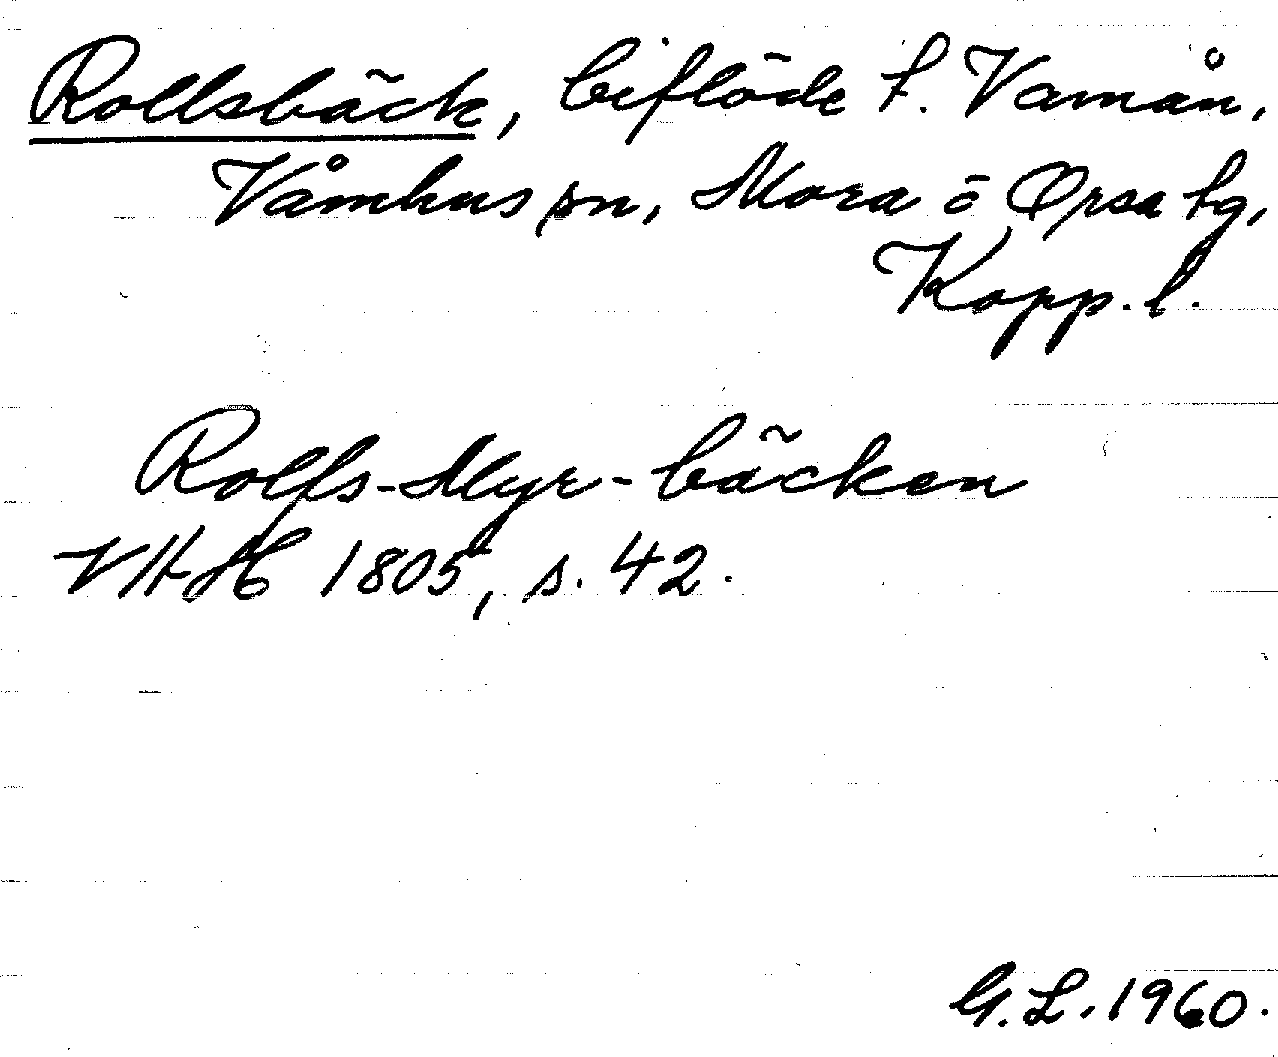 Rollsbäck, biflöde t. Vamån,
Våmhus sn, Mora o Orsa tg,
Kopp. l.
Rolfs-Myr-bäcken
VHH 1805, s. 42.
G. L. 1960.